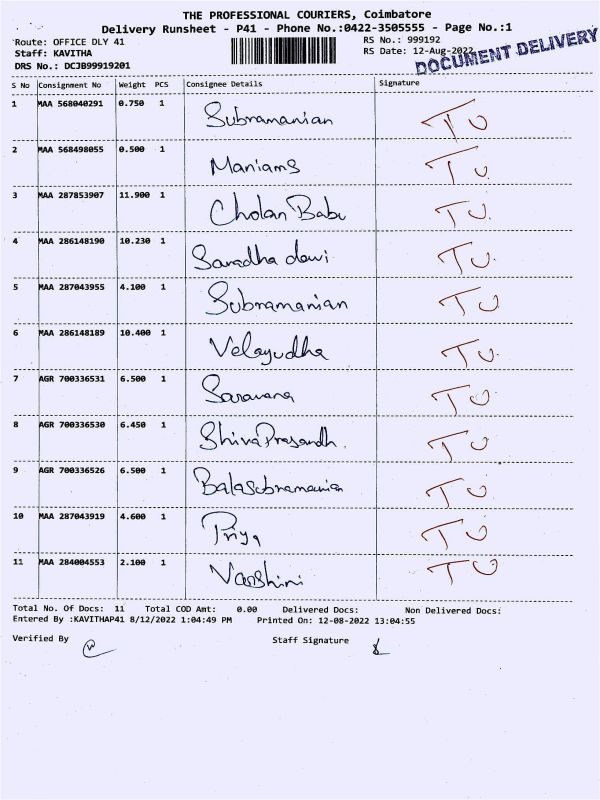 THE PROFESSIONAL COURIERS, Coimbatore
Delivery Runsheet - P41 - Phone No.:0422-3505555 - Page No.:1
Route: OFFICE DLY 41 RS No.: 999192
Staff: KAVITHA RS Date: 12-Aug-2022
DRS No.: DCJB99919201 DOCUMENT DELIVERY
S No Consignment No Weight PCS Consignee Details Signature
1 MAA 568040291 0.750 1 Subramanian TU
2 MAA 568498055 0.500 1 Maniams TU
3 MAA 287853907 11.900 1 Cholan Babu TU
4 MAA 286148190 10.230 1 Saradha devi TU
5 MAA 287043955 4.100 1 Subramanian TU
6 MAA 286148189 10.400 1 Velayudha TU
7 AGR 700336531 6.500 1 Saravana TU
8 AGR 700336530 6.450 1 Shiva Prasandh. TU
9 AGR 700336526 6.500 1 Balasubramanian TU
10 MAA 287043919 4.600 1 Priya TU
11 MAA 284004553 2.100 1 Varshini TU
Total No. Of Docs: 11 Total COD Amt: 0.00 Delivered Docs: Non Delivered Docs:
Entered By :KAVITHAP41 8/12/2022 1:04:49 PM Printed On: 12-08-2022 13:04:55
Verified By Staff Signature